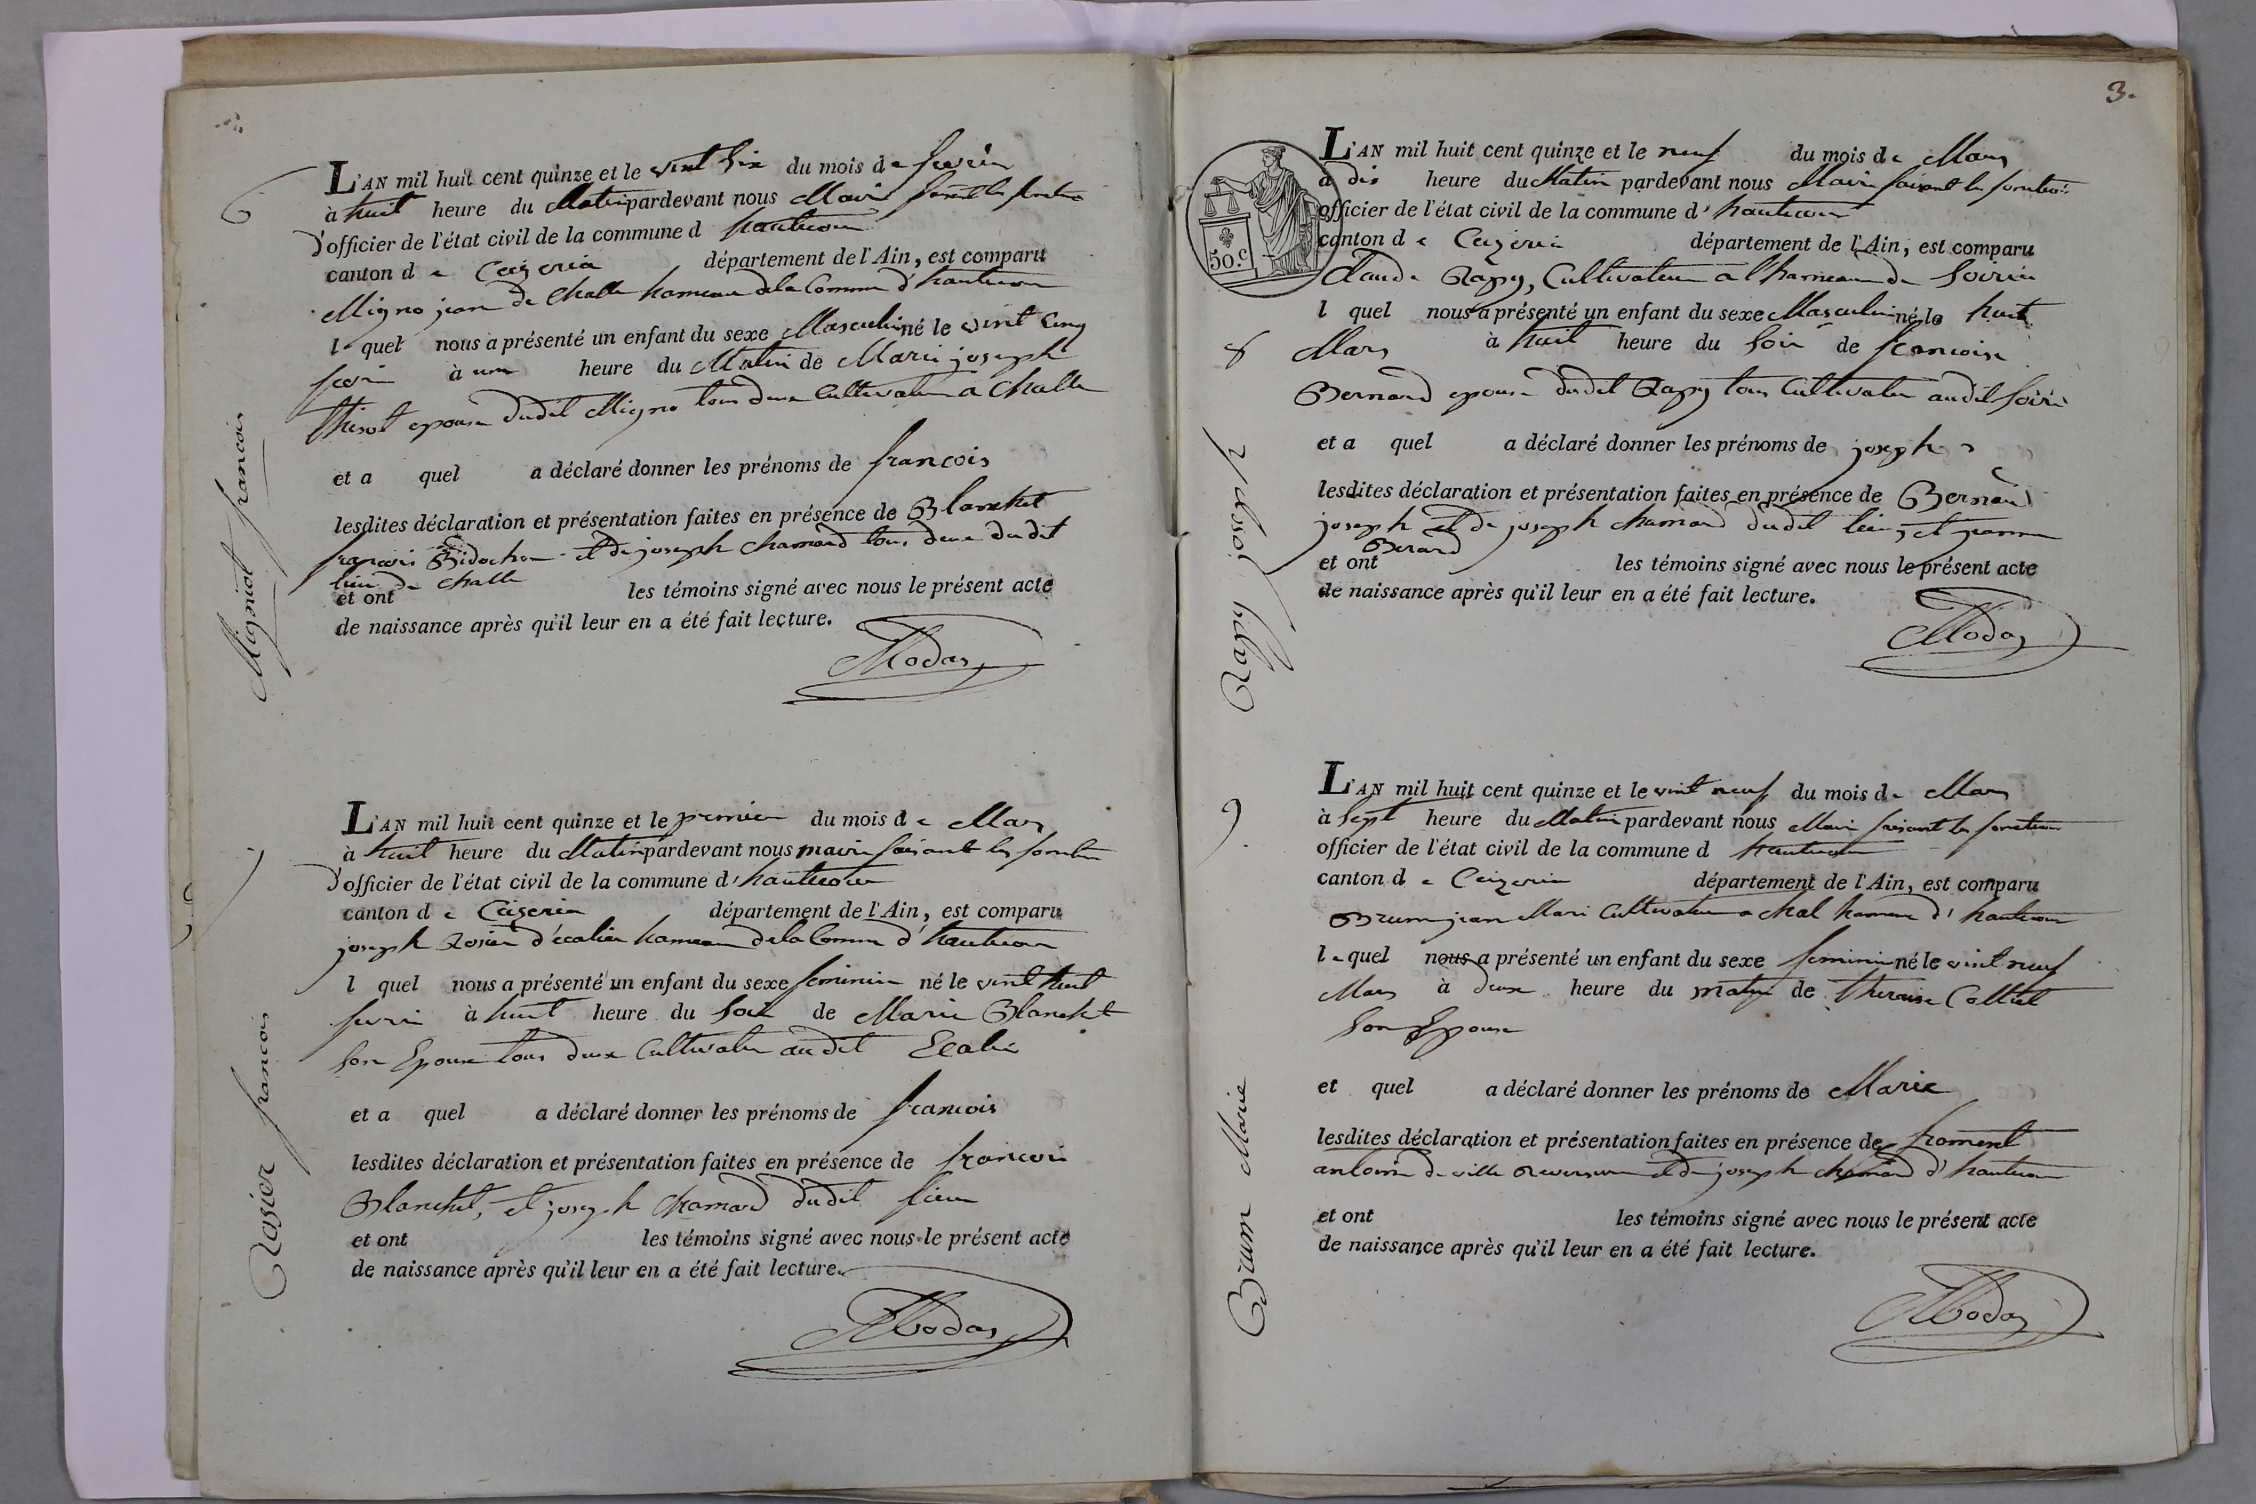 6
Mignot francois
L'AN mil huit cent quinze et le vint six du mois de fevrier
à huit heure du Matin pardevant nous Maire
d'officier de l'état civil de la commune d hautecour
canton de Ceizeria département de l'Ain, est comparu
Migno jean de Challe hameau dela Commune d'hautecour
le quel nous a présenté un enfant du sexe Masculin né le vint Cinq
à une heure du Matin de Marie joseph
epouse dudit Migno tous deux Cultivateur a Challe
et a quel a déclaré donner les prénoms de francois
lesdites déclaration et présentation faites en présence de Blanchet
francois Bidochon et de joseph chamard tous deux dudit
lieu de challe
et ont les témoins signé avec nous le présent acte
de naissance après qu'il leur en a été fait lecture.
Modas
7
Rosier francois
L'AN mil huit cent quinze et le premier du mois de Mars
à huit heure du Matin pardevant nous maire faisant les
d'officier de l'état civil de la commune d'hautecour
canton de Ceizeria département de l'Ain, est comparu
joseph Rosier d'ecalier hameau dela Commune d'hautecour
l quel nous a présenté un enfant du sexe feminin né le vint huit
à huit heure du Soir de Marie Blanchet
Son Epouse tous deux Cultivateur audit
et a quel a déclaré donner les prénoms de francois
lesdites déclaration et présentation faites en présence de francois
Blanchet, et joseph Chamard dudit lieu
et ont les témoins signé avec nous le présent acte
de naissance après qu'il leur en a été fait lecture.
Modas
3.
50.c
8
Rapy joseph
L'AN mil huit cent quinze et le neuf du mois de Mars
à dix heure du Matin pardevant nous Maire faisant les
officier de l'état civil de la commune d'hautecour
canton de Ceizeria département de l'Ain, est comparu
Claude Rapy, Cultivateur a l'hameau de
l quel nous a présenté un enfant du sexe Masculin né le huit
Mars à huit heure du Soir de francoise
Bernard epouse dudit Rapy tous Cultivateur audit
et a quel a déclaré donner les prénoms de joseph
lesdites déclaration et présentation faites en présence de Bernard
joseph et de joseph chamard dudit lieu, et
Berard
et ont les témoins signé avec nous le présent acte
de naissance après qu'il leur en a été fait lecture.
Modas
9
Brum Marie
L'AN mil huit cent quinze et le vint neuf du mois de Mars
à Sept heure du Matin pardevant nous Maire faisant les fonction
officier de l'état civil de la commune d hautecour
canton de Ceizeria département de l'Ain, est comparu
Brum jean Mari Cultivateur a chal hameau d'hautecour
le quel nous a présenté un enfant du sexe feminin né le vint neuf
Mars à deux heure du matin de Theraise
Son Epouse
et quel a déclaré donner les prénoms de Marie
lesdites déclaration et présentation faites en présence de froment
antoine de ville et de joseph chamard d'hautecour
et ont les témoins signé avec nous le présent acte
de naissance après qu'il leur en a été fait lecture.
Modas